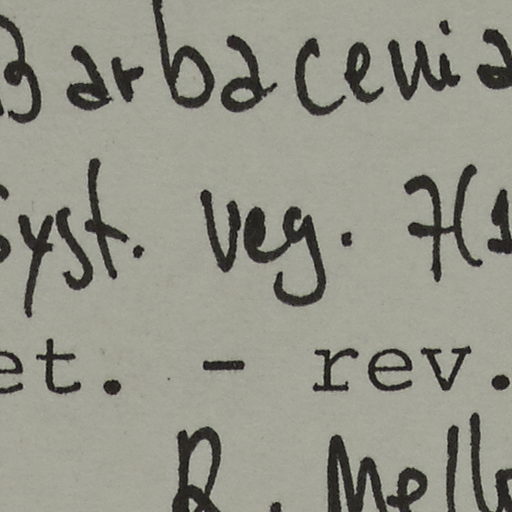 Barbacenia
Syst. veg. 7(1
et. - rev.
R. Mello